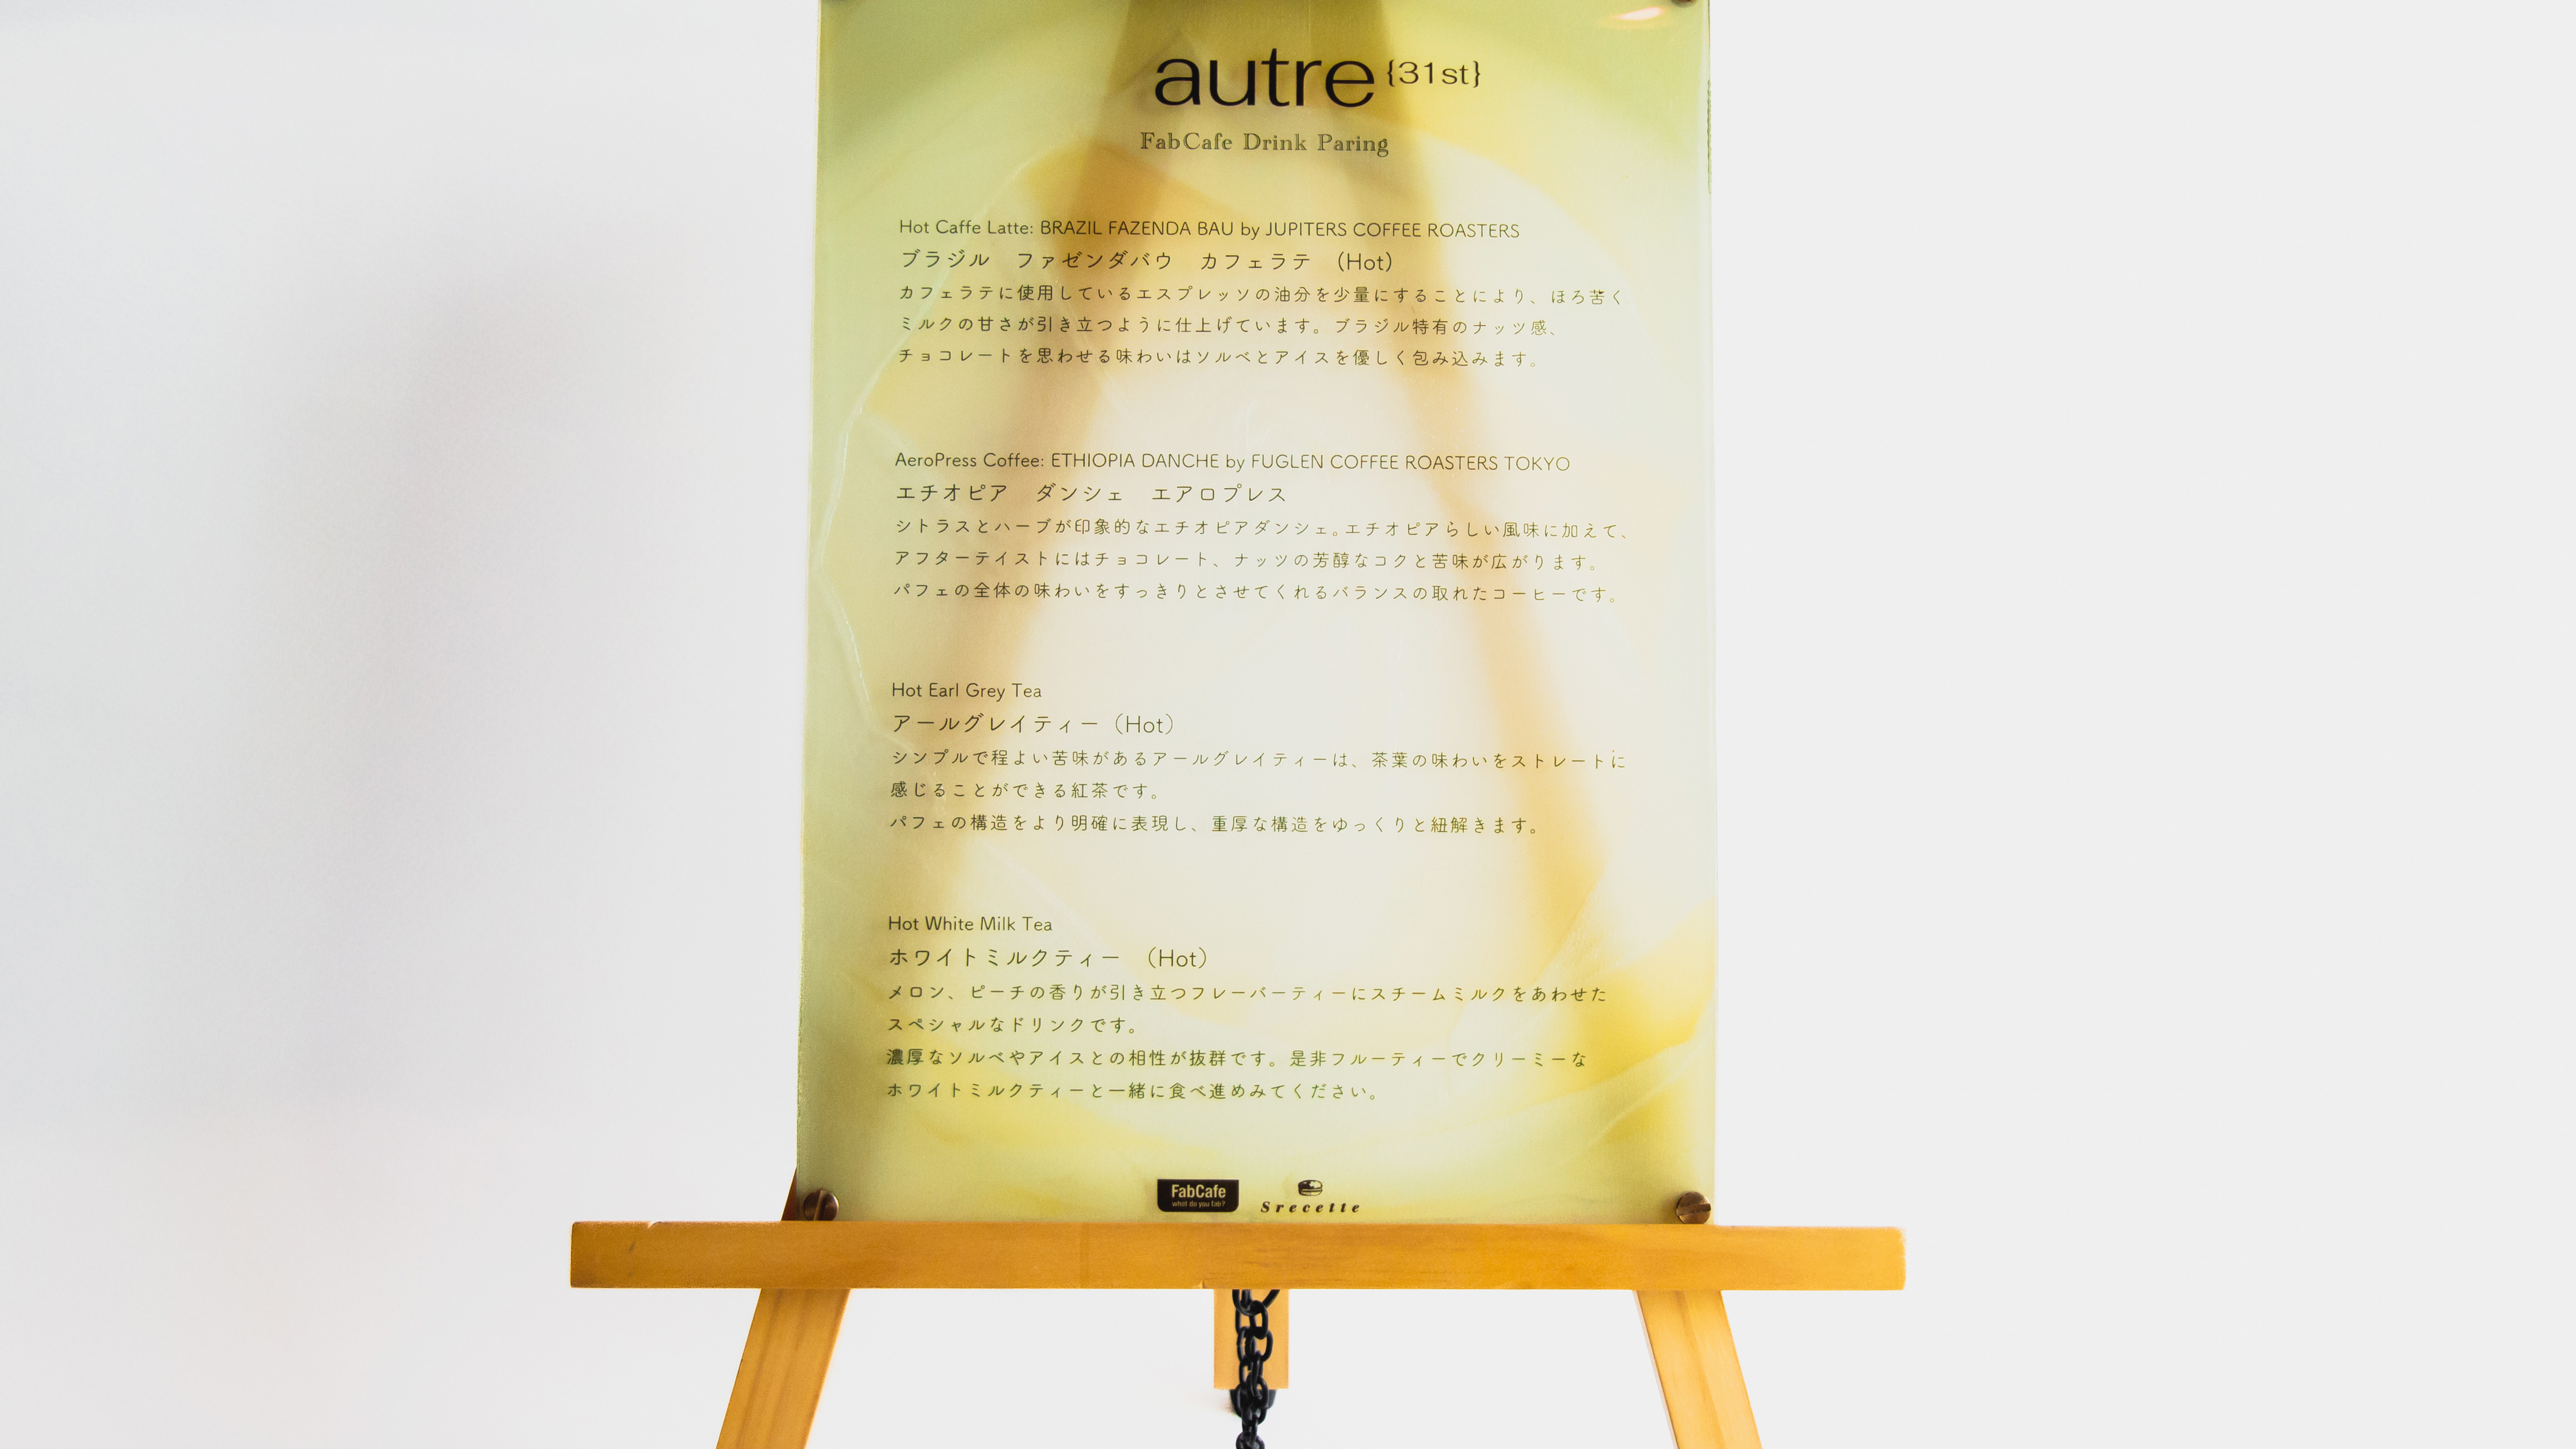 autre {31st}
FabCafe Drink Paring
Hot Caffe Latte: BRAZIL FAZENDA BAU by JUPITERS COFFEE ROASTERS
ブラジル　ファゼンダバウ　カフェラテ　(Hot)
カフェラテに使用しているエスプレッソの油分を少量にすることにより、ほろ苦く
ミルクの甘さが引き立つように仕上げています。ブラジル特有のナッツ感、
チョコレートを思わせる味わいはソルベとアイスを優しく包み込みます。
AeroPress Coffee: ETHIOPIA DANCHE by FUGLEN COFFEE ROASTERS TOKYO
エチオピア　ダンシェ　エアロプレス
シトラスとハーブが印象的なエチオピアダンシェ。エチオピアらしい風味に加えて、
アフターテイストにはチョコレート、ナッツの芳醇なコクと苦味が広がります。
パフェの全体の味わいをすっきりとさせてくれるバランスの取れたコーヒーです。
Hot Earl Grey Tea
アールグレイティー（Hot）
シンプルで程よい苦味があるアールグレイティーは、茶葉の味わいをストレートに
感じることができる紅茶です。
パフェの構造をより明確に表現し、重厚な構造をゆっくりと紐解きます。
Hot White Milk Tea
ホワイトミルクティー　（Hot）
メロン、ピーチの香りが引き立つフレーバーティーにスチームミルクをあわせた
スペシャルなドリンクです。
濃厚なソルベやアイスとの相性が抜群です。是非フルーティーでクリーミーな
ホワイトミルクティーと一緒に食べ進めみてください。
FabCafe
what do you fab?
Srecette